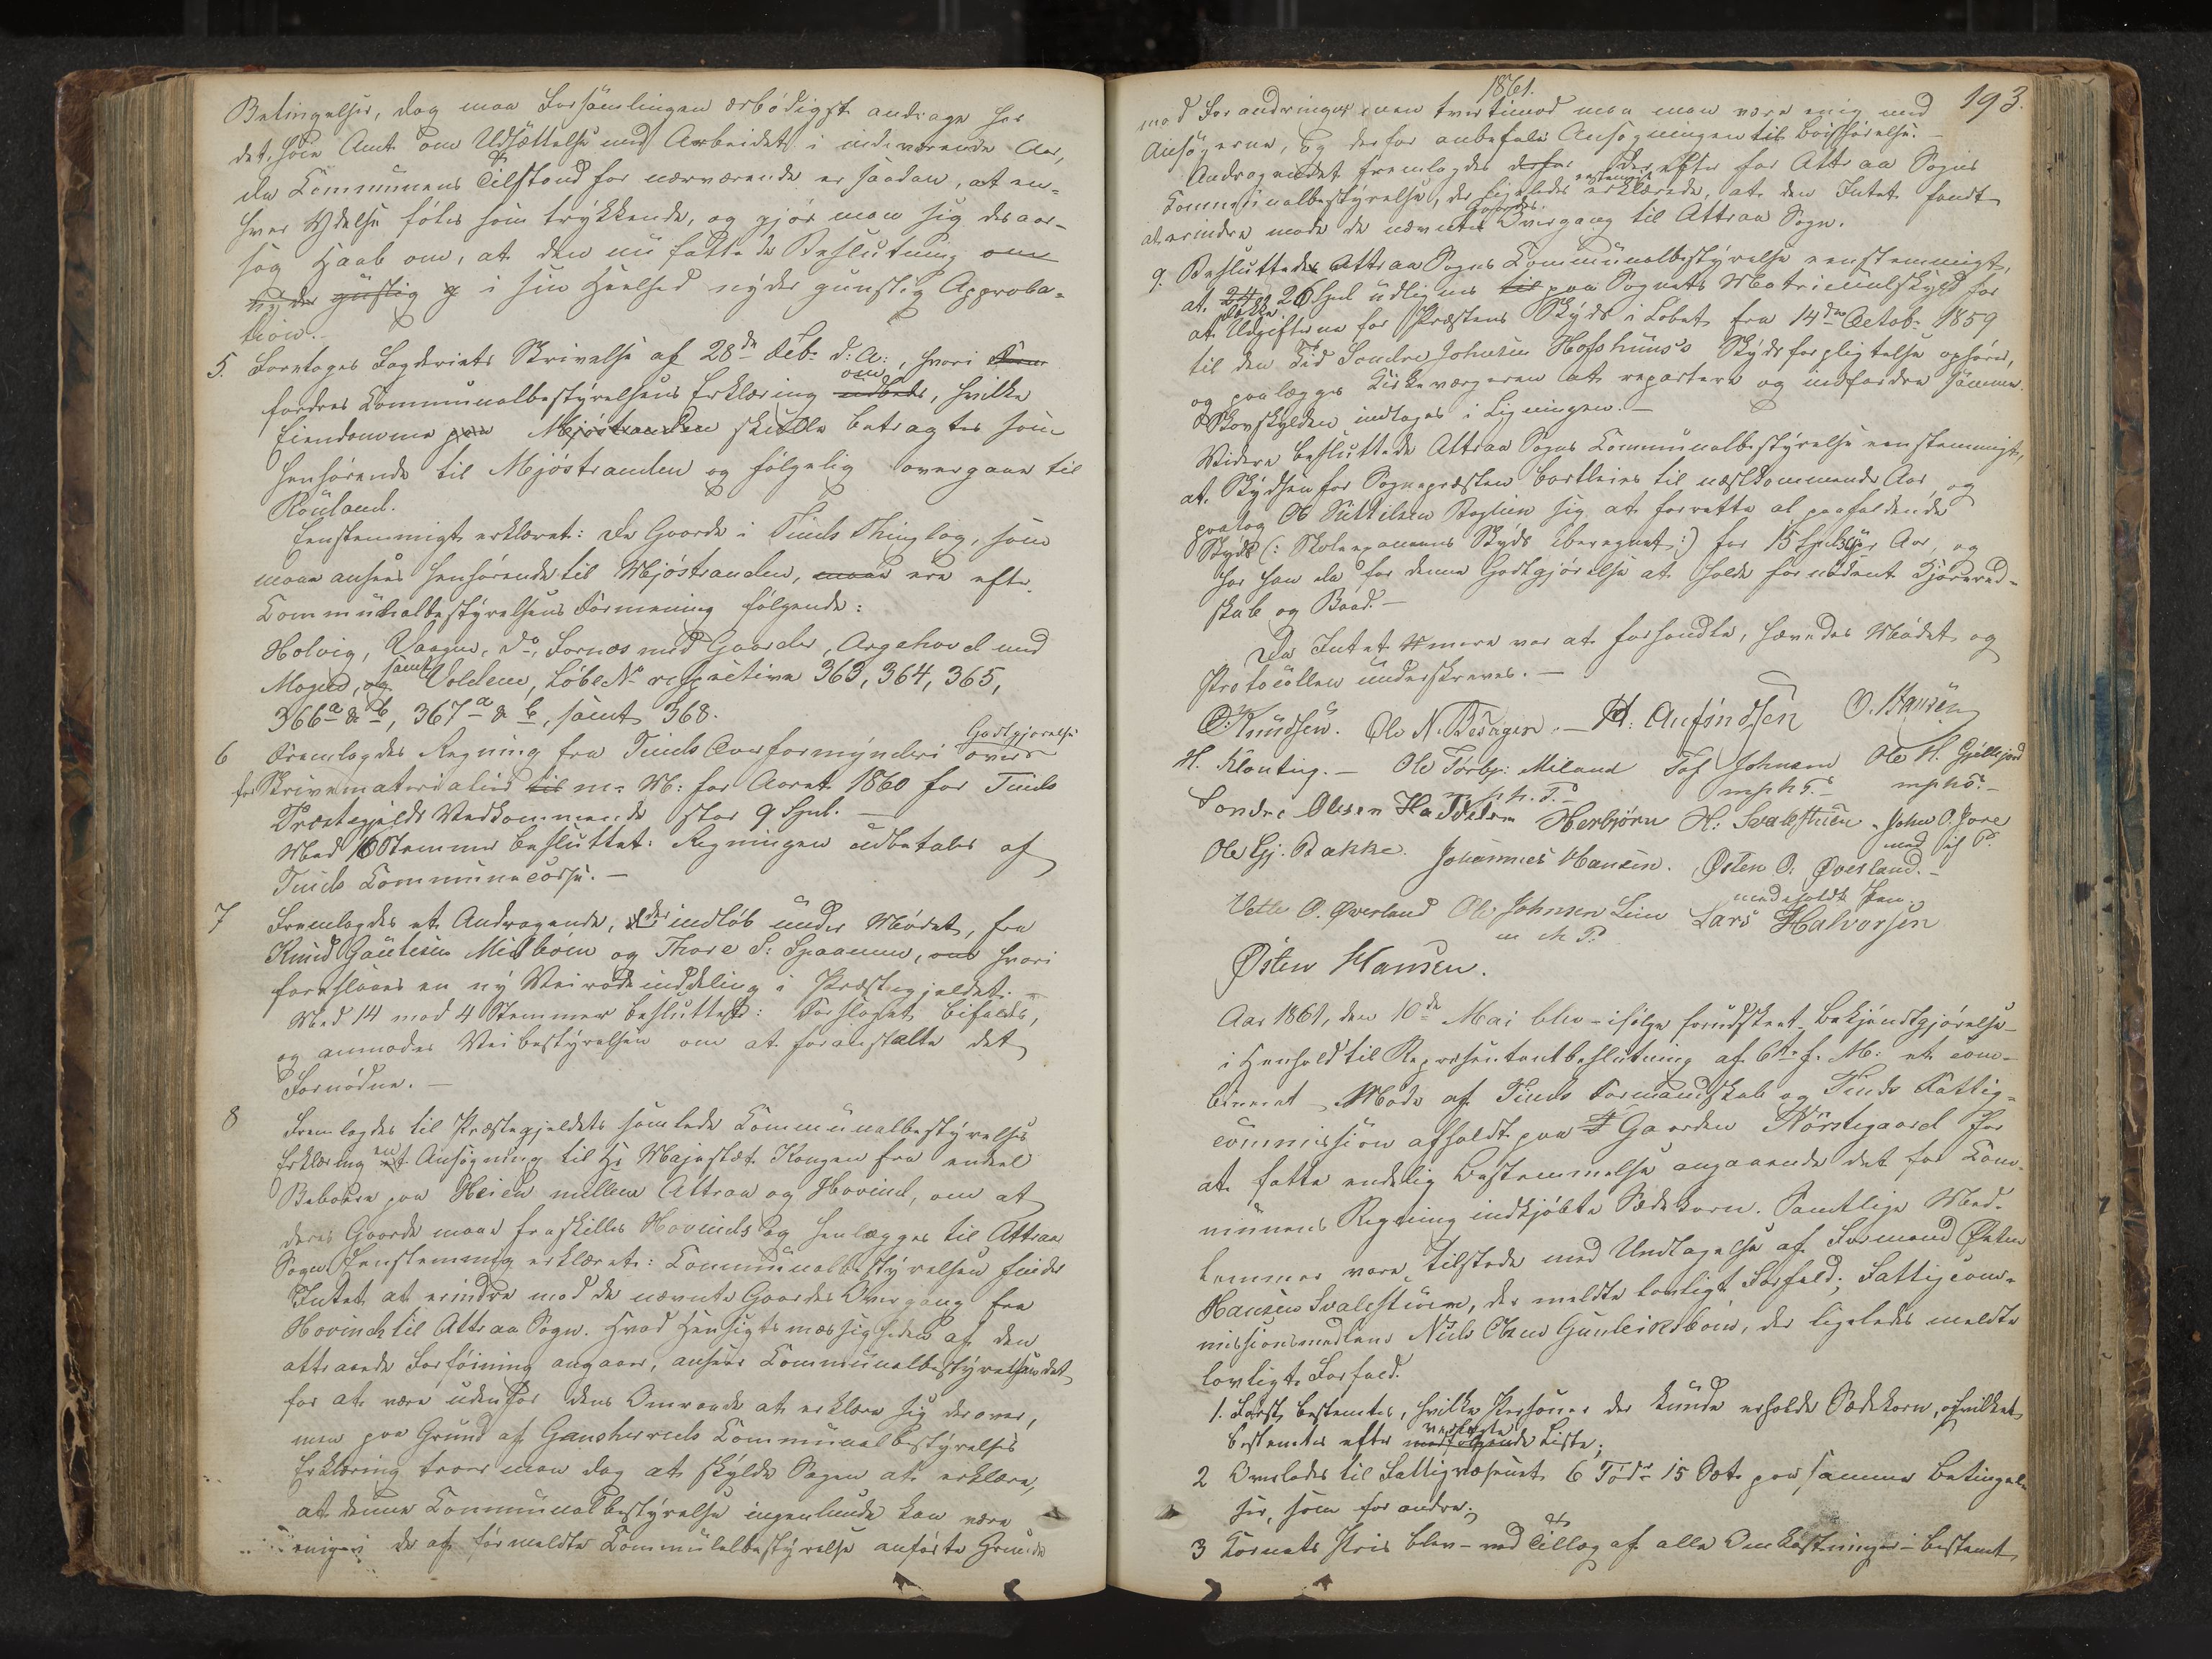 Betingelser, dog maa Forsamlingen ærbødigst andrage hos
det høie Amt om Udsættelse med Arbeidet i indeværende Aar,
da Kommunens Tilstand for nærværende er saadan, at en-
hver Ydelse føles som trykkende, og gjør man sig desaar-
sag Haab om, at den nu fattede Beslutning om
nyder gunstig g i sin Heelhed nyder gunstig Approba-
tion.
5. Foretoges Fogderiets Skrivelse af 28de Feb. d: A:, hvori
fordres Communalbestyrelsens Erklæring om udbeds, hvilke
Eiendomme paa Mjøstranden skulle betragtes som
henhørende til Mjøstranden og følgelig overgaae til
Rauland.
Eenstemmigt erklæret: De Gaarde i Tinds Thinglag, som
maae ansees henhørende til Mjøstranden, maae ere efter
Communalbestyrelsens Formening følgende:
Holvig, Vaagen, Do, Fornæs med Gaarder, Argehovd med
Mogned, og samt Volden, LøbeNo respective 363, 364, 365,
366a & b, 367a & b, samt 368.
6 Fremlagdes Regning fra Tinds Overformynderi over Godtgjørelse
for Skrivematerialier til m. M: for Aaret 1860 for Tinds
Præstegjelds Vedkommende stor 9 Spd. —
Med 16 Stemmer besluttet: Regningen udbetales af
Tinds Communecasse. —
7 Fremlagdes et Andragende, der indløb under Mødet, fra
Knud Gautesen Milboen og Thore S: Spaanem, om hvori
foreslaaes en ny Veirodeinddeling i Præstegjeldet. —
Med 14 mod 4 Stemmer besluttet: Forslaget bifaldes,
og anmodes Veibestyrelsen om at foranstalte det
Fornødne. —
8 Fremlagdes til Præstegjeldets samlede Communalbestyrelses
Erklæring en Ansøgning til Hs Majestæt Kongen fra endeel
Beboere paa Heien mellem Attraa og Hovind, om at
deres Gaarde maae fraskilles Hovinds og henlægges til Attraa
Sogn. Eenstemmig erklæret: Communalbestyrelsen finder
Intet at erindre mod de nævnte Gaardes Overgang fra
Hovind til Attraa Sogn. Hvad Hensigtsmæssigheden af den
attraaede Forføining angaaer, anseer Communalbestyrelsen det
for at være udenfor dens Omraade at erklære sig derover,
men paa Grund af Gausherreds Communalbestyrelses
Erklæring troer man dog at skylde Sagen at erklære,
at denne Communalbestyrelse ingenlunde kan være
enig i de af formeldte Communalbestyrelse anførte Grunde
1861.
193.
mod Forandringen men tvertimod maa man være enig med
Ansøgerne, og derfor anbefale Ansøgningen til Bønhørelse. —
Andragendet fremlagdes derfor derefter for Attraa Sogns
Kommunalbestyrelse, der ligeledes eenstemmigt erklærede, at den Intet fandt
at erindre mod de nævnte Gaardes Overgang til Attraa Sogn.
9. Besluttedes Attraa Sogns Communalbestyrelse eenstemmigt,
at 24 26 Spd udlignes til paa Sognets Matriculskyld for
at dække Udgifterne for Præstens Skyds i Løbet fra 14de Octob. 1859
til den Tid Sondre Johnsen Hofshuus's Skydsforpligtelse ophører,
og paalægges Kirkeværgeren at repartere og indfordre samme.
Skovskylden indtages i Ligningen. —
Videre besluttede Attraa Sogns Communalbestyrelse eenstemmigt,
at Skydsen for Sognepræsten bortleies til næstkommende Aar, og
paatog Ole Kittilsen sig at forrette al paafaldende
Skyds (: Skoleexamens Skyds iberegnet :) for 15 Spd pr Aar, og
har han da for denne Godtgjørelse at holde fornødent Kjørered-
skab og Baad. —
Da Intet mere var at forhandle, hævedes Mødet og
Protocollen underskreves. —
O. Knudsen. Ole N. Bøaagen. — H: Anfindsen O. Hansen
H. Kloutrig. — Ole Torbj: Miland Tof Johnsen Ole H. Gjellesjord
m ph. P. mphP. — mphP. —
Sondre Olesen Haddeland Herbjørn H: Svalestuen. John O. Gøre
med ph P.
Ole Gj. Bakke. Johannes Hansen. Østen O. Øverland. —
medholdt Pen
Vetle O. Øverland Ole Johnsen Lien Lars Halvorsen
m H P.
Østen Hansen.
Aar 1861, den 10de Mai blev – ifølge forudskeet Bekjendtgjørelse –
i Henhold til Repræsentantbeslutning af 6te f. M: et com-
bineret Møde af Tinds Formandskab og Tinds Fattig-
commission afholdt paa Gaarden Nørstegaard for
at fatte endelig Bestemmelse angaaende det for Com-
munens Regning indkjøbte Sædekorn. Samtlige Med-
lemmer vare tilstede med Undtagelse af Formand Østen
Hansen Svalestuen, der meldte lovligt Forfald; Fattigcom-
missionsmedlem Niels Olsen Gunleiksboen, der ligeledes meldte
lovligt Forfald.
1. Først bestemtes, hvilke Personer der kunde erholde Sædekorn, hvilket
bestemtes efter medfølgende vedlagte Liste;
2 Overlodes til Fattigvæsenet 6 Tødr 15 Sæt. paa samme Betingel-
ser, som for andre;
3 Kornets Pris blev – ved Tillæg af alle Omkostninger – bestemt